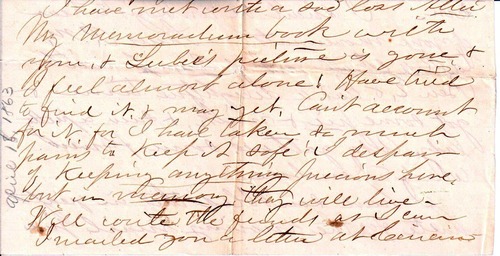 I have met with a sad loss. After
My Memorandum book with
your, & Lulie's picture is gone, &
I feel almost alone! Have tried
to find it, & may yet. Can't account
for it for I have taken so much
pains to keep it safe! I despair
of keeping anything precious here,
but in memory they will live –
Will write the friends at
I mailed you a letter at
April 8, 1863